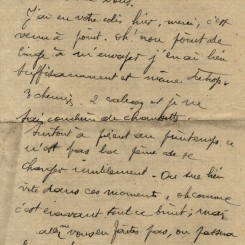 vous.
J'ai eu votre colis hier, merci, c'est
venu à point. Oh! non point de
linge à m'envoyer j'en ai bien
suffisamment et même de trop.
3 chemises, 2 caleçons et je ne
sais combien de chaussettes.
Surtout à présent au printemps, ce
n'est pas la peine de se
charger inutilement. On sue bien
vite dans ces moments, oh comme
c'est énervant tout ce bruit; mais
vous en faites pas, on passera